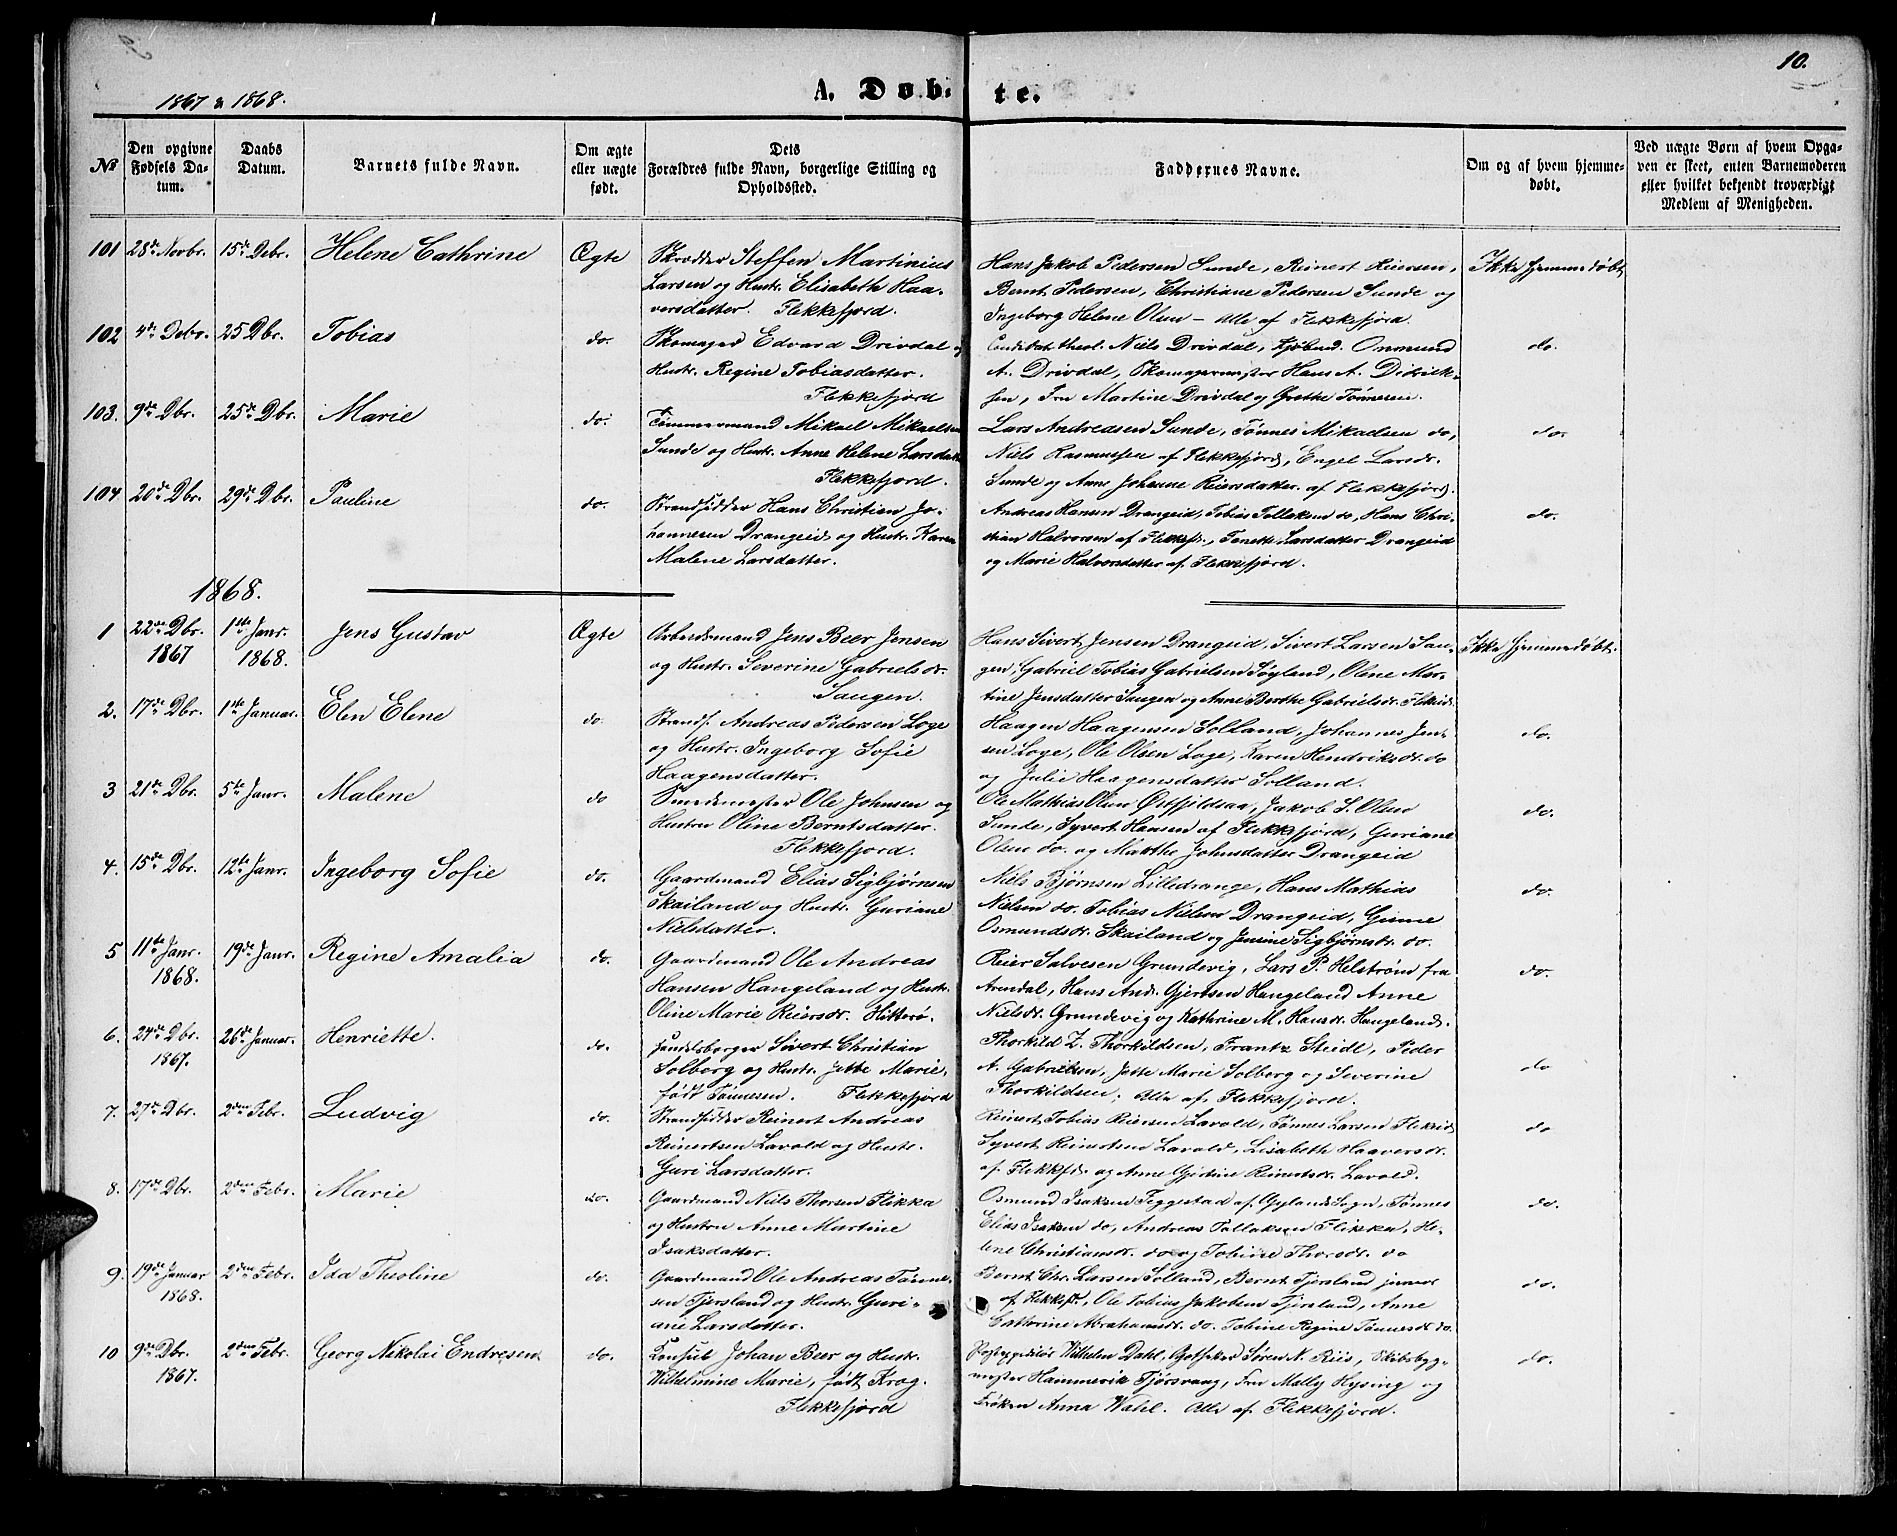 10.
1867 & 1868.
A. Døbte.
No
Den opgivne Fødsels Datum.
Daabs Datum.
Barnets fulde Navn.
Om ægte eller uægte født.
Dets Forældres fulde Navn, borgerlige Stilling og Opholdssted.
Faddernes Navne.
Om og af hvem hjemmedøbt.
Ved uægte Børn af hvem Opgaven er skeet, enten Barnemoderen eller hvilket bekjendt troværdigt Medlem af Menigheden.
101 28de Novbr. 15de Debr. Helene Cathrine Ægte Skrædder Steffen Martinius
Larsen og Hustr. Elisabeth Haa-
versdatter. Flekkefjord.
Hans Jakob Pedersen Sunde, Reinert Reiersen,
Bernt Pedersen, Christiane Pedersen Sunde og
Ingeborg Helene Olsen - Alle af Flekkefjord.
Ikke hjemmedøbt
102 4de Debr. 25 Dbr. Tobias do. Skomager Edvard Drivdal og
Hustr. Regine Tobiasdatter.
Flekkefjord
Candidat theol. Niels Drivdal, Osmund
A. Drivdal, Skomagermester Hans A. Didrik-
sen, Fru Martine Drivdal og Grethe Tønnesen.
do.
103. 9de Dbr. 25de Dbr. Marie do. Tømmermand Mikael Mikaelsen
Sunde og Hustr. Anne Helene Larsdatter
Flekkefjord.
Lars Andreasen Sunde, Tønnes Mikaelsen do,
Niels Rasmussen af Flekkefjord, Engel Larsdr.
Sunde og Anne Johanne Reiersdatter af Flekkefjord.
do.
104. 20de Dbr. 29de Dbr. Pauline do. Strandsidder Hans Christian Jo-
hannesen Drangeid og Hustr. Karen
Malene Larsdatter.
Andreas Hansen Drangeid, Tobias Tollaksen do, Hans Chri-
stian Halvorsen af Flekkefj., Tonette Larsdatter Drangeid
og Marie Halvorsdatter af Flekkefjord.
do.
1868.
1 22de Dbr. 1867 1ste Janr. 1868. Jens Gustav Ægte Arbeidsmand Jens Beer Jensen
og Hustr. Severine Gabrielsdr.
Saugen.
Hans Sivert Jensen Drangeid, Sivert Larsen Sau-
gen, Gabriel Tobias Gabrielsen Søyland, Olene Mar-
tine Jensdatter Saugen og Anne Berthe Gabrielsdr. Flekkefj.
Ikke hjemmedøbt.
2. 17de Dbr. 1ste Januar. Elen Elene do. Strands. Andreas Pedersen Loge
og Hustr. Ingeborg Sofie
Haagensdatter.
Haagen Haagensen Solland, Johannes Jen-
sen Loge, Ole Olsen Loge, Karen Hendriksdr. do
og Julie Haagensdatter Solland.
do.
3 21de Dbr. 5te Janr. Malene do Smedemester Ole Johnsen og
Hustru Oline Berntsdatter.
Flekkefjord.
Ole Mathias Olsen Østfildsaa, Jakob S. Olsen
Sunde, Syvert Hansen af Flekkefjord, Guriane
Olsen do. og Marthe Johnsdatter Drangeid
do.
4. 15de Dbr. 12te Janr. Ingeborg Sofie do. Gaardmand Elias Sigbjørnsen
Skailand og Hustr. Guriane
Nielsdatter.
Niels Bjørnsen Lilledrange, Hans Mathias
Nielsen do. Tobias Nielsen Drangeid, Gunne
Osmundsdr. Skailand og Jensine Sigbjørnsdr. do.
do.
5 11te Janr. 1868. 19de Janr. Regine Amalia do. Gaardmand Ole Andreas
Hansen Hangeland og Hustr.
Oline Marie Reiersdr. Hitterø.
Reier Salvesen Grundevig, Lars P. Helstrøm fra
Arendal, Hans Andr. Gjertsen Hangeland Anne
Nielsdr. Grundevig og Kathrine M. Hansdr. Hangeland.
do.
6. 24de Dbr. 1867. 26de Januar. Henriette. do. Handelsborger Sivert Christian
Solberg og Hustr. Jette Marie,
født Tønnesen. Flekkefjord
Thorkild Z. Thorkildsen, Frantz Steidl, Peder
A. Gabrielsen, Jette Marie Solberg og Severine
Thorkildsen; Alle af Flekkefjord.
do
7. 27de Dbr. 2den Febr. Ludvig do. Strandsidder Reinert Andreas
Reinertsen Lavold og Hustr.
Guri Larsdatter.
Reinert Tobias Reiersen Lavold, Tønnes Larsen Flekkefj.
Syvert Reinertsen Lavold, Lisabeth Haaversdr.
af Flekkefj. og Anne Gjedine Reinertsdr. Lavold.
do
8. 17de Dbr. 2den Febr. Marie do. Gaardmand Niels Thorsen Flikka
og Hustru Anne Martine
Isaksdatter.
Osmund Isaksen Eeggestad af Gylands Sogn, Tønnes
Elias Isaksen do, Andreas Tollaksen Flikka, He-
lene Christiansdr. do og Tobine Thorsdr. do
do.
9. 19de Januar 1868. 2den Febr. Ida Theoline do. Gaardmand Ole Andreas Tønne-
sen Tjersland og Hustr. Guri-
arie Larsdatter.
Bernt Chr. Larsen Solland, Bernt Tjersland junior
af Flekkefj., Ole Tobias Jakobsen Tjersland, Anne
Cathrine Abrahamsdr. do. Tobine Regine Tønnesdr. do.
do.
10 9de Dbr. 1867. 2den Febr. Georg Nikolai Endresen do. Konsul Johan Beer og Hustr.
Wilhelmine Marie, født Krog.
Flekkefjord
Postexpeditør Wilhelm Dahl, Apotheker Søren N. Riis, Skibsbyg-
mester Hammerik Tjørsvaag, Fru Mally Hysing og
Frøken Anna Wahl. Alle af Flekkefjord.
do.